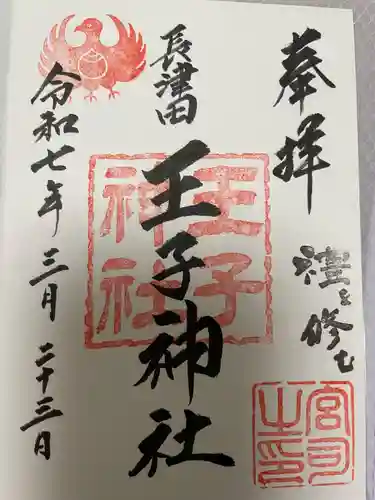 奉拝
禮を修む
長津田
王子神社
王子神社
宮司之印
令和七年三月二十三日